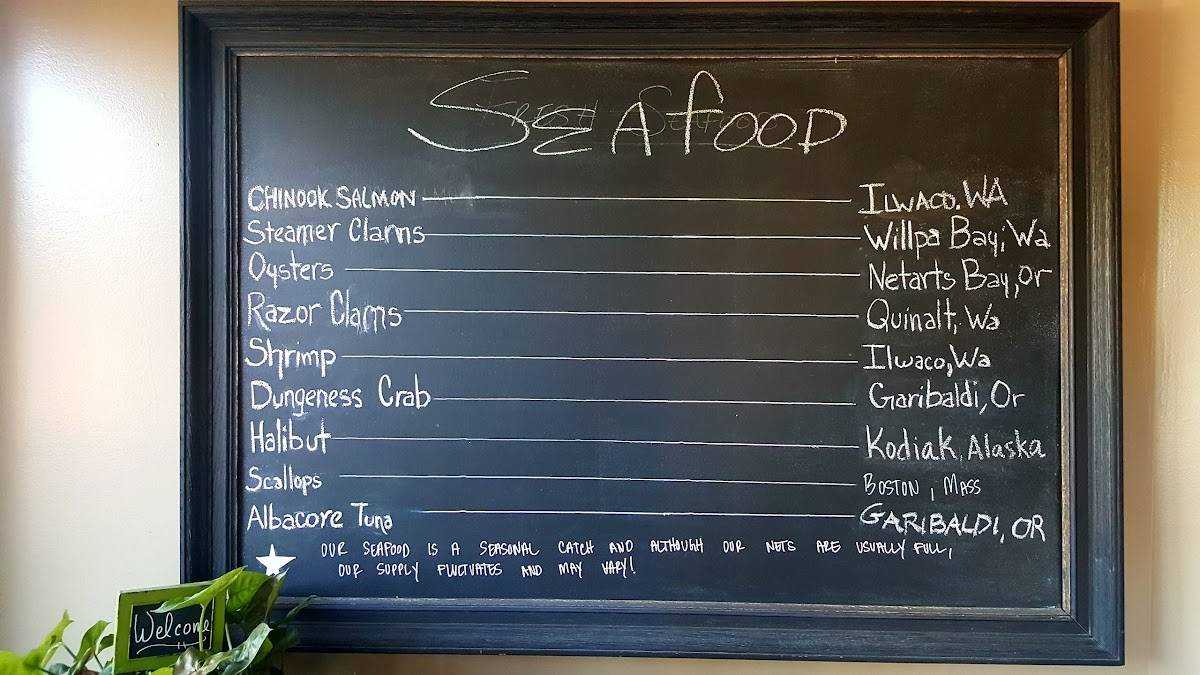 SEAfOOD
CHINOOK SALMON ILWACO. WA
Steamer Clams Willpa Bay, Wa
Oysters Netarts Bay, Or
Razor Clams Quinalt, Wa
Shrimp Ilwaco, Wa
Dungeness Crab Garibaldi, Or
Halibut Kodiak, Alaska
Scallops BOSTON, MASS
Albacore Tuna GARIBALDI, OR
OUR SEAFOOD IS A SEASONAL CATCH AND ALTHOUGH OUR NETS ARE USUALLY FULL,
OUR SUPPLY FLUCTUATES AND MAY VARY!
Welcome